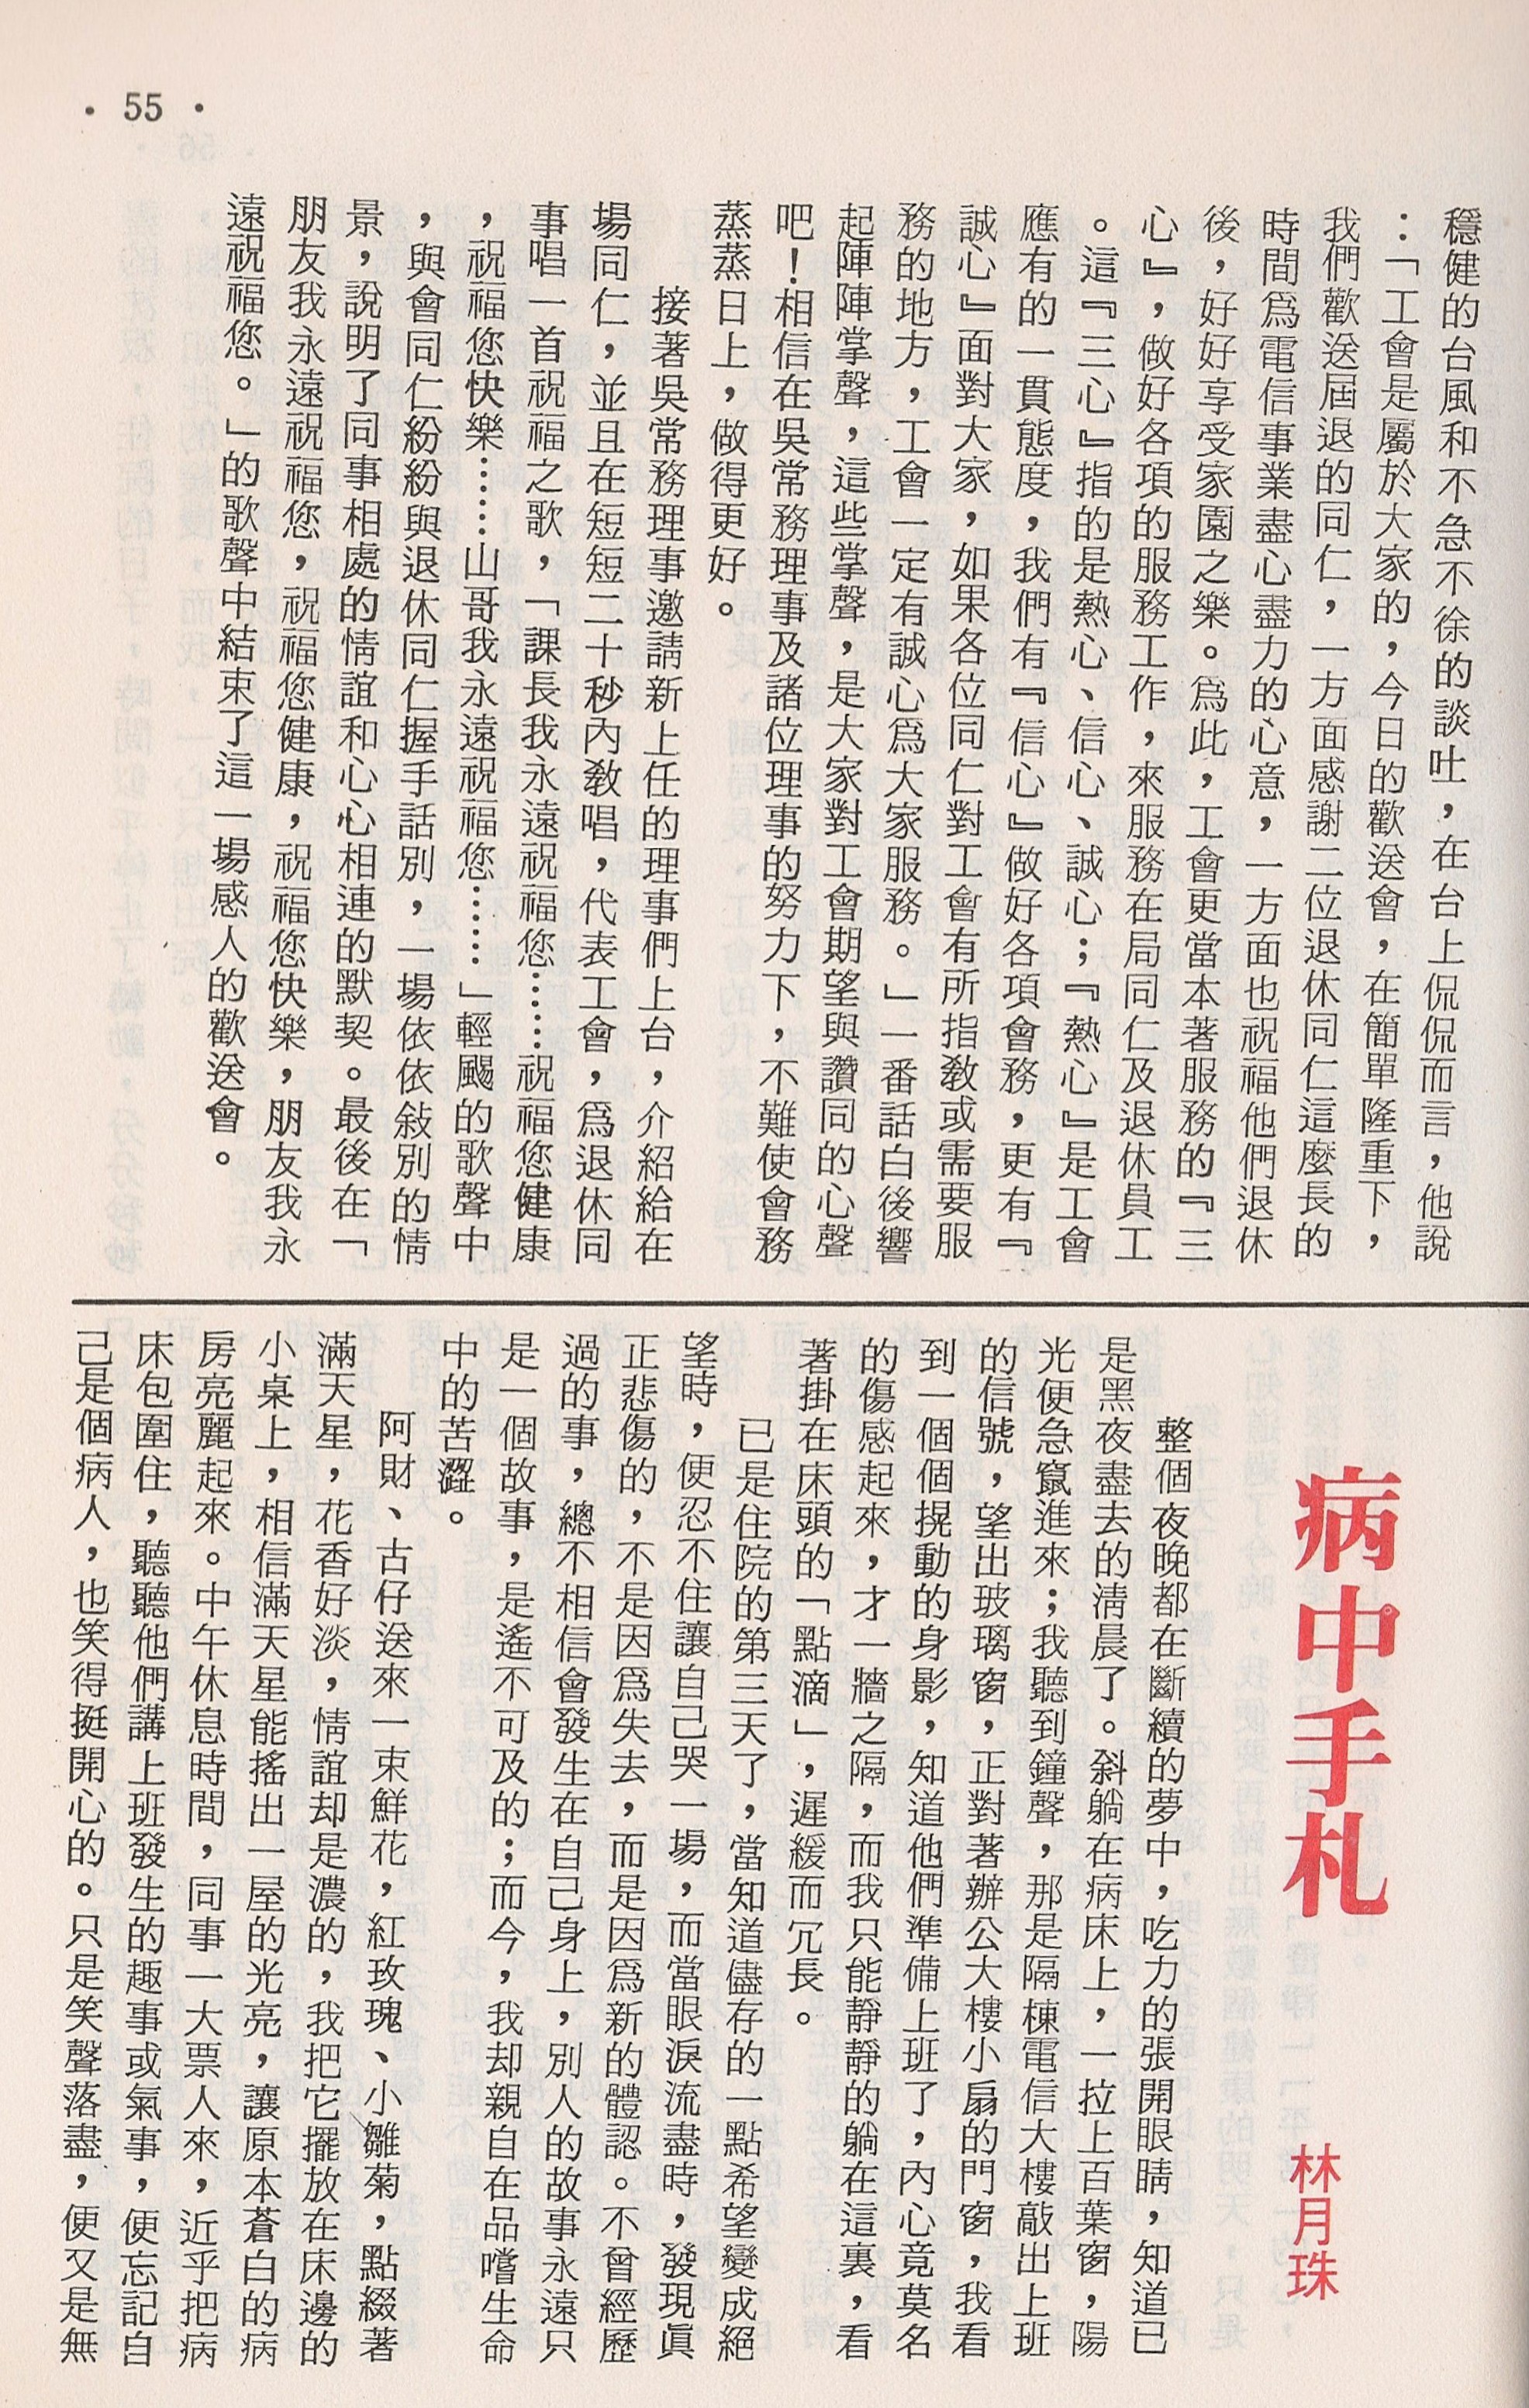 • 55 •
穩健的台風和不急不徐的談吐，在台上侃侃而言，他說
：「工會是屬於大家的，今日的歡送會，在簡單隆重下，
我們歡送屆退的同仁，一方面感謝二位退休同仁這麼長的
時間爲電信事業盡心盡力的心意，一方面也祝福他們退休
後，好好享受家園之樂。爲此，工會更當本著服務的『三
心』，做好各項的服務工作，來服務在局同仁及退休員工
。這『三心』指的是熱心、信心、誠心；『熱心』是工會
應有的一貫態度，我們有『信心』做好各項會務，更有『
誠心』面對大家，如果各位同仁對工會有所指敎或需要服
務的地方，工會一定有誠心爲大家服務。」一番話白後響
起陣陣掌聲，這些掌聲，是大家對工會期望與讚同的心聲
吧！相信在吳常務理事及諸位理事的努力下，不難使會務
蒸蒸日上，做得更好。
接著吳常務理事邀請新上任的理事們上台，介紹給在
場同仁，並且在短短二十秒內敎唱，代表工會，爲退休同
事唱一首祝福之歌，「課長我永遠祝福您……祝福您健康
，祝福您快樂……山哥我永遠祝福您……」輕颺的歌聲中
，與會同仁紛紛與退休同仁握手話別，一場依依敍別的情
景，說明了同事相處的情誼和心心相連的默契。最後在「
朋友我永遠祝福您，祝福您健康，祝福您快樂，朋友我永
遠祝福您。」的歌聲中結束了這一場感人的歡送會。
病中手札
林月珠
整個夜晚都在斷續的夢中，吃力的張開眼睛，知道已
是黑夜盡去的淸晨了。斜躺在病床上，一拉上百葉窗，陽
光便急竄進來；我聽到鐘聲，那是隔棟電信大樓敲出上班
的信號，望出玻璃窗，正對著辦公大樓小扇的門窗，我看
到一個個提動的身影，知道他們準備上班了，內心竟莫名
的傷感起來，才一牆之隔，而我只能靜靜的躺在這裏，看
著掛在床頭的「點滴」，遲緩而冗長。
已是住院的第三天了，當知道僅存的一點希望變成絕
望時，便忍不住讓自己哭一場，而當眼淚流盡時，發現眞
正悲傷的，不是因爲失去，而是因爲新的體認。不曾經歷
過的事，總不相信會發生在自己身上，別人的故事永遠只
是一個故事，是遙不可及的；而今，我却親自在品嚐生命
中的苦澀。
阿財、古仔送來一束鮮花，紅玫瑰、小雛菊，點綴著
滿天星，花香好淡，情誼却是濃的，我把它擺放在床邊的
小桌上，相信滿天星能搖出一屋的光亮，讓原本蒼白的病
房亮麗起來。中午休息時間，同事一大票人來，近乎把病
床包圍住，聽聽他們講上班發生的趣事或氣事，便忘記自
己是個病人，也笑得挺開心的。只是笑聲落盡，便又是無